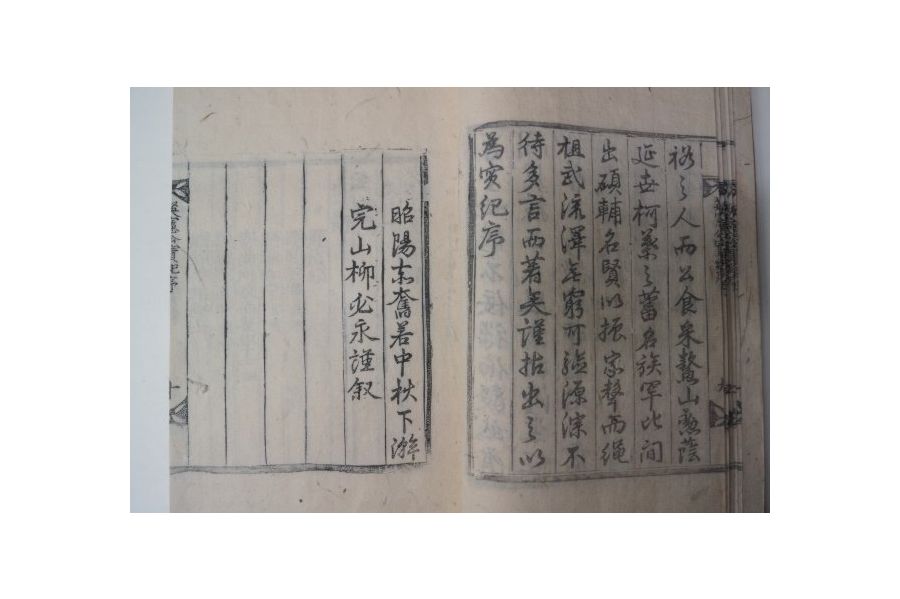 裕之人而公食采鰲山勳蔭
延世柯葉之蕃名族罕比間
出碩輔名賢以振家聲而繩
祖武流澤無窮可驗源深不
待多言而著矣謹拈出之以
為實紀序
昭陽赤奮若中秋下澣
完山柳必永謹叙